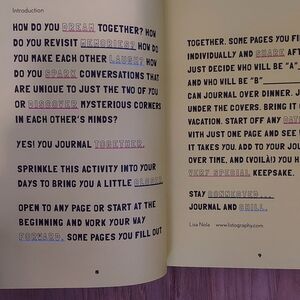 Introduction
HOW DO YOU DREAM TOGETHER? HOW
DO YOU REVISIT MEMORIES? HOW DO
YOU MAKE EACH OTHER LAUGH? HOW
DO YOU SPARK CONVERSATIONS THAT
ARE UNIQUE TO JUST THE TWO OF YOU
OR DISCOVER MYSTERIOUS CORNERS
IN EACH OTHER'S MINDS?
YES! YOU JOURNAL TOGETHER.
SPRINKLE THIS ACTIVITY INTO YOUR
DAYS TO BRING YOU A LITTLE CLOSER.
OPEN TO ANY PAGE OR START AT THE
BEGINNING AND WORK YOUR WAY
FORWARD. SOME PAGES YOU FILL OUT
8
TOGETHER. SOME PAGES YOU FI
INDIVIDUALLY AND SHARE AFT
JUST DECIDE WHO WILL BE "A"
AND WHO WILL BE "B"
CAN JOURNAL OVER DINNER. J
UNDER THE COVERS. BRING IT
VACATION. START OFF ANY DAT
WITH JUST ONE PAGE AND SEE
IT TAKES YOU. ADD TO YOUR JO
OVER TIME, AND (VOILÀ!) YOU H
VERY SPECIAL KEEPSAKE.
STAY CONNECTED...
JOURNAL AND CHILL.
Lisa Nola www.listography.com
9